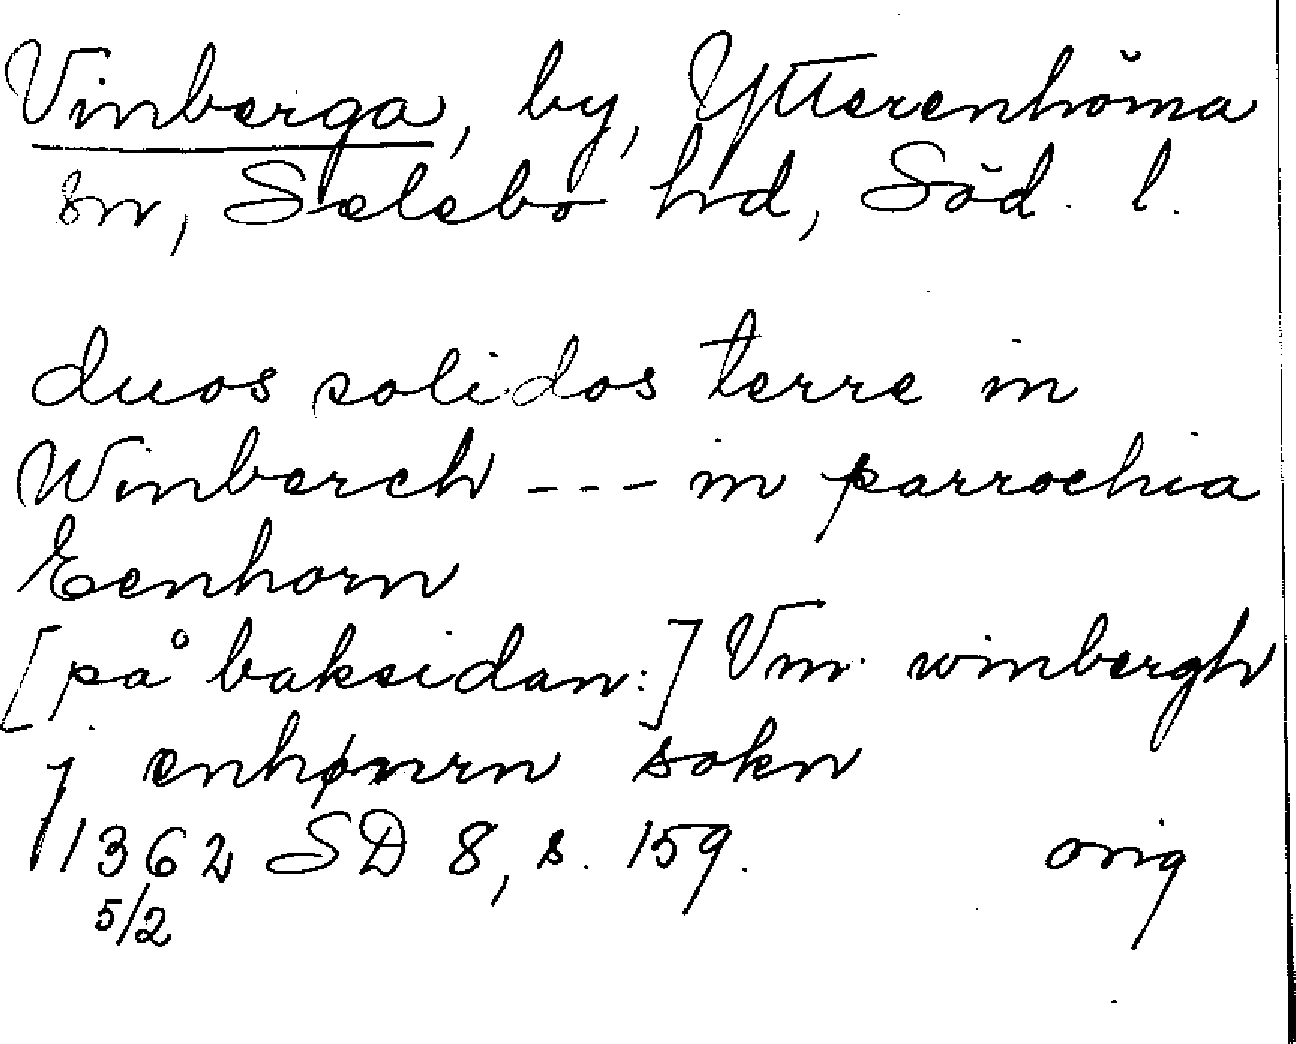 Vinberga, by, Ytterenhörna
sn, Selebo hd, Söd. l.
duos solidos terre in
Winberch --- in parrochia
Eenhorn
[på baksidan:] Vm winbergh
j enhørn sokn
1362 SD 8, s. 159. orig
5/2